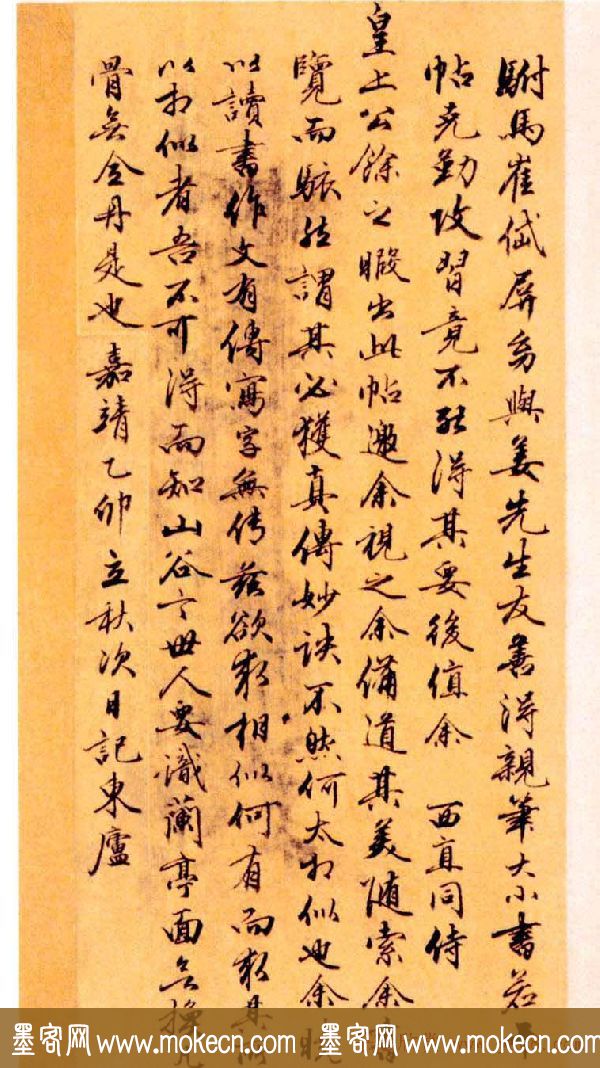 駙馬崔岱屏翁與姜先生友善得親筆大小書若干
帖克勤攻習竟不能得其要後值余 西直同侍
皇上公餘之暇出此帖邀余視之余備道其美随索余書
覽而駭然謂其必獲真傳妙訣不然何太相似也余曉
以讀書作文有傳寫字無传兹欲求相似何有而求其所
以相似者吾不可得而知山谷言世人要識蘭亭面無換凡
骨無金丹是也嘉靖乙卯立秋次日記東廬
墨客网 www.mokecn.com 墨客网 www.mokecn.com